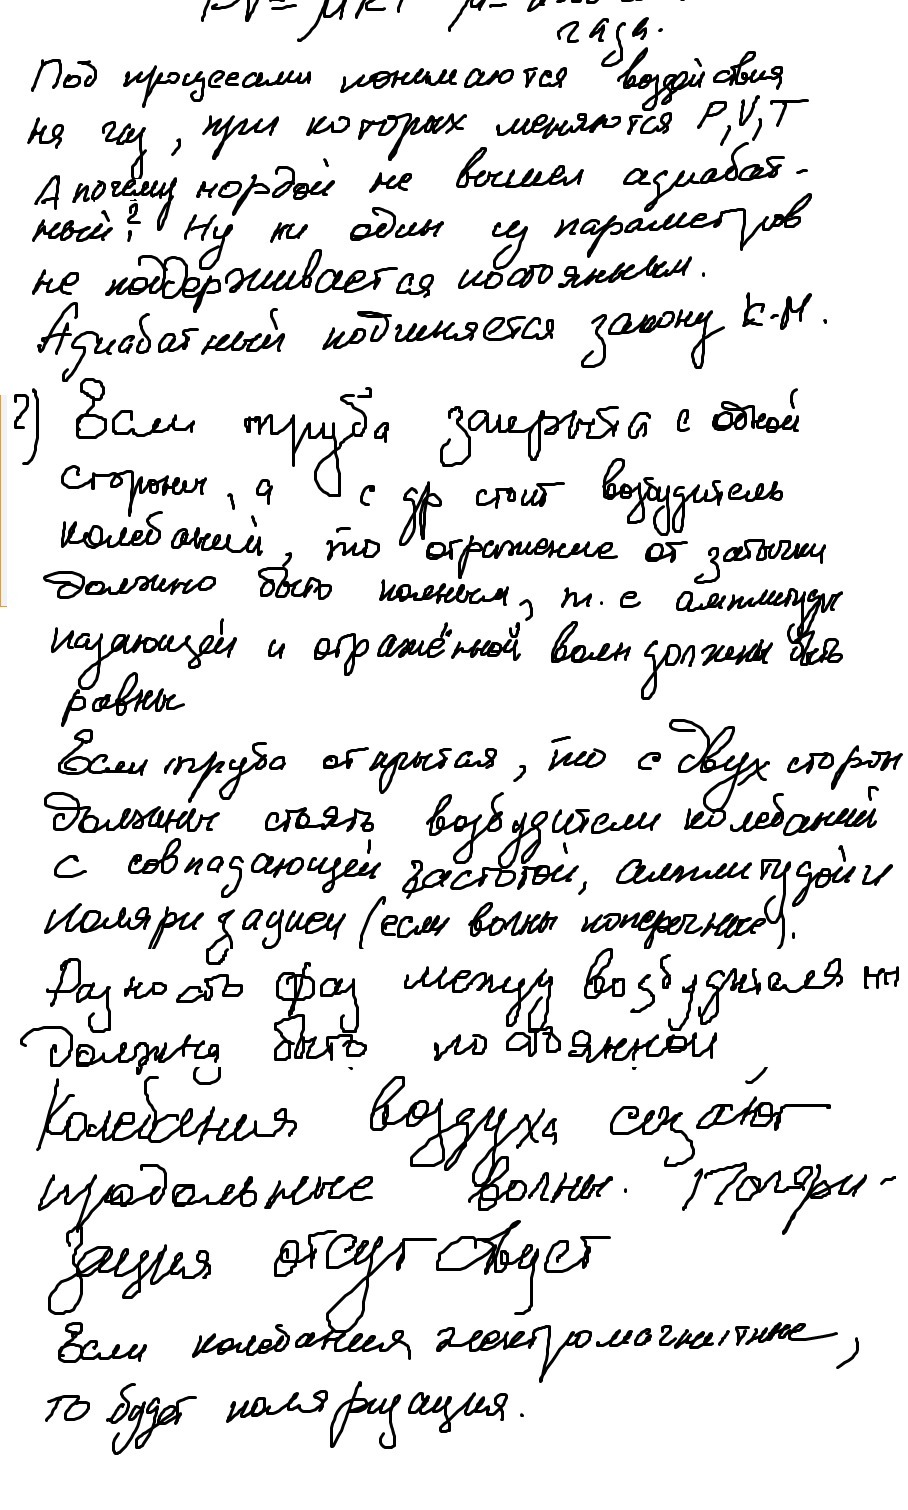 PV = μRT μ =
газа.
Под процессами понимаются воздействия
на газ, при которых меняются P, V, T
А почему мордой не вышел адиабат-
ный? Ну ни один из параметров
не поддерживается постоянным.
Адиабатный подчиняется закону К-М.
2) Если труба закрыта с одной
стороны, а с др стоит возбудитель
колебаний, то отражение от затычки
должно быть полным, т.е амплитуды
падающей и отражённой волн должны быть
равны
Если труба открытая, то с двух сторон
должны стоять возбудители колебаний
с совпадающей частотой, амплитудой и
поляризацией (если волны поперечные).
Разность фаз между возбудителями
должна быть постоянной
Колебания воздуха создают
продольные волны. Поляри-
зация отсутствует
Если колебания электромагнитные,
то будет поляризация.